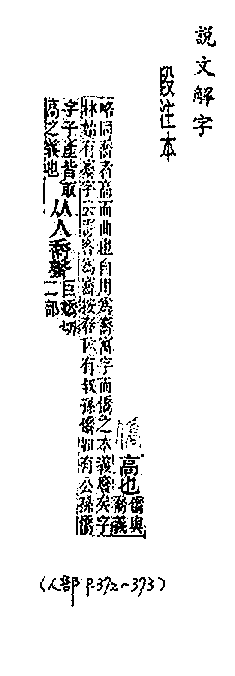 說文解字
段注本
高也僑與
喬義
略同喬者高而曲也自用爲喬寓字而僑之本義廢矣字
林始有字云寄客爲按春秋有叔孫僑如有公孫僑
字子產皆取
高之義也
从人喬聲巨嬌切
二部
(人部 P.372~373)